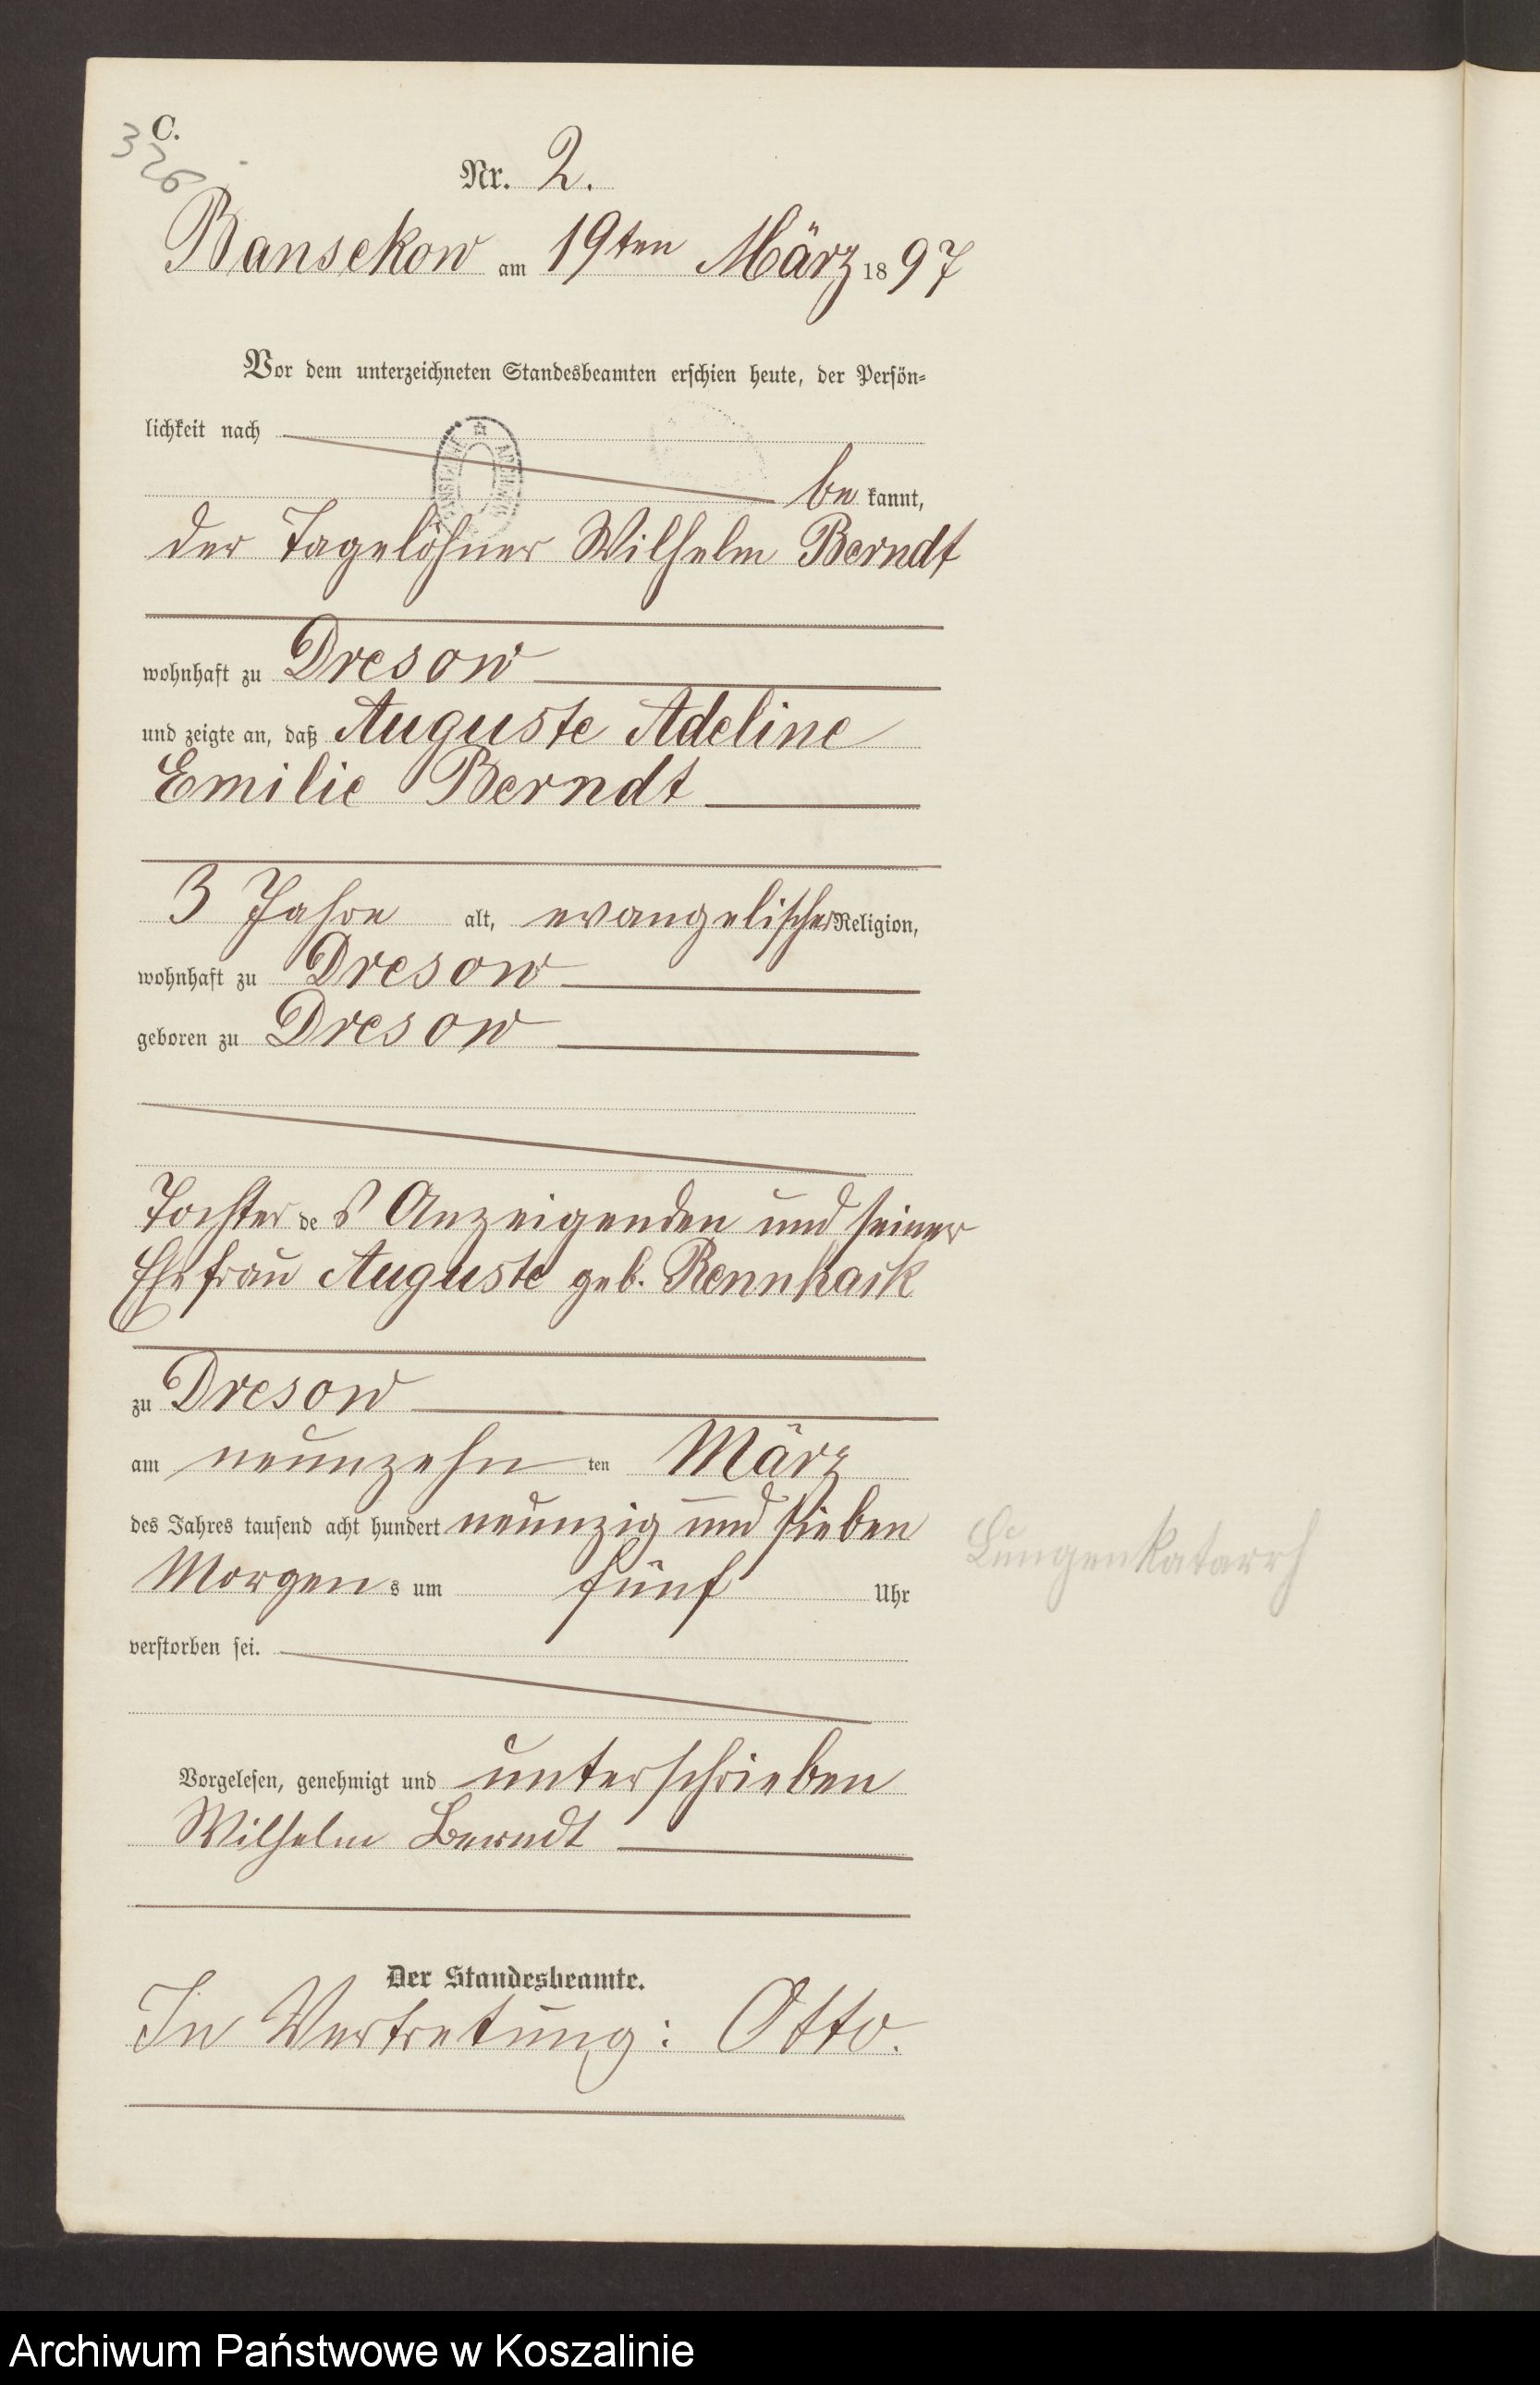 C.
326
Nr. 2.
Bansekow am 19ten März 1897
Vor dem unterzeichneten Standesbeamten erschien heute, der Persön-
lichkeit nach
be kannt,
der Tagelöhner Wilhelm Berndt
wohnhaft zu Dresow
und zeigte an, daß Auguste Adeline
Emilie Berndt
3 Jahre alt, evangelischer Religion,
wohnhaft zu Dresow
geboren zu Dresow
Tochter des Anzeigenden und seiner
Ehefrau Auguste geb.
zu Dresow
am neunzehn ten März
des Jahres tausend acht hundert neunzig und sieben
Morgens um fünf Uhr
verstorben sei.
Lungenkatarrh
Vorgelesen, genehmigt und unterschrieben
Wilhelm Berndt
Der Standesbeamte.
In Vertretung: Otto.
Archiwum Państwowe w Koszalinie